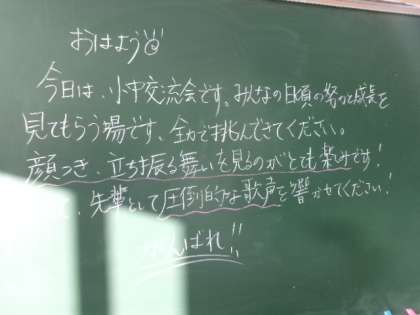 おはよう
今日は、小中交流会です。みんなの日頃の努力と成長を
見てもらう場です。全力で挑んできてください。
顔つき、立ち振る舞いを見るのがとても楽しみです!
、先輩として圧倒的な歌声を響かせてください!
がんばれ!!